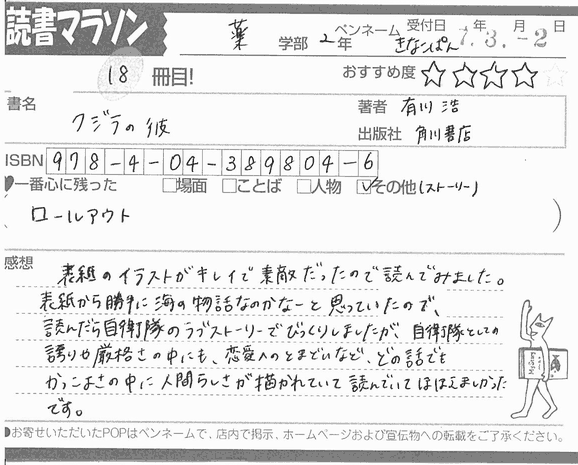 読書マラソン
薬 学部 2年 ペンネーム きなこぱん 受付日 7.年3.月-2日
18 冊目! おすすめ度 ☆☆☆☆
書名 クジラの彼
著者 有川 浩
出版社 角川書店
ISBN 978-4-04-389804-6
一番心に残った □場面 □ことば □人物 ☑その他(ストーリー)
(ロールアウト)
感想 表紙のイラストがキレイで素敵だったので読んでみました。
表紙から勝手に海の物語なのかなーと思っていたので、
読んだら自衛隊のラブストーリーでびっくりしましたが、自衛隊としての
誇りや厳格さの中にも、恋愛へのとまどいなど、どの話でも
かっこよさの中に人間らしさが描かれていて読んでいてほほえましかった
です。
●お寄せいただいたPOPはペンネームで、店内で掲示、ホームページおよび宣伝物への転載をご了承ください。